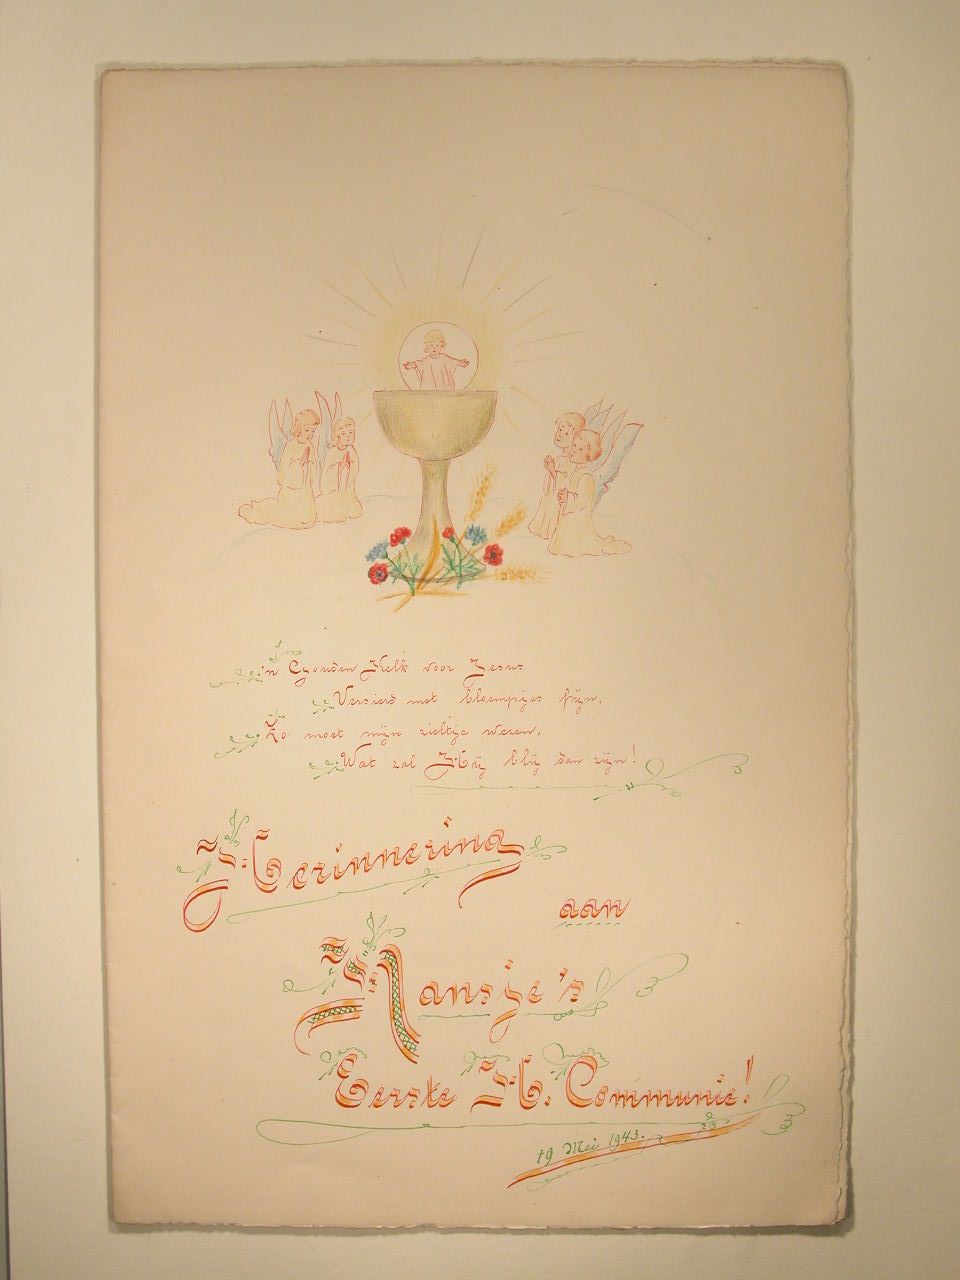 'n Gouden Kelk voor Jesus
Versierd met bloempjes fijn.
Zo moet mijn zieltje wezen,
Wat zal Hij blij dan zijn!
Herinnering
aan
Hansje's
Eerste H. Communie!
19 Mei 1943.